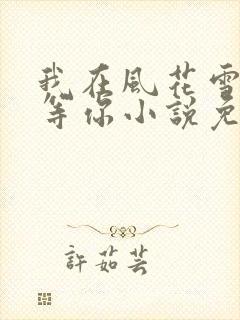 我在風花雪
等你小說免
許茹芸